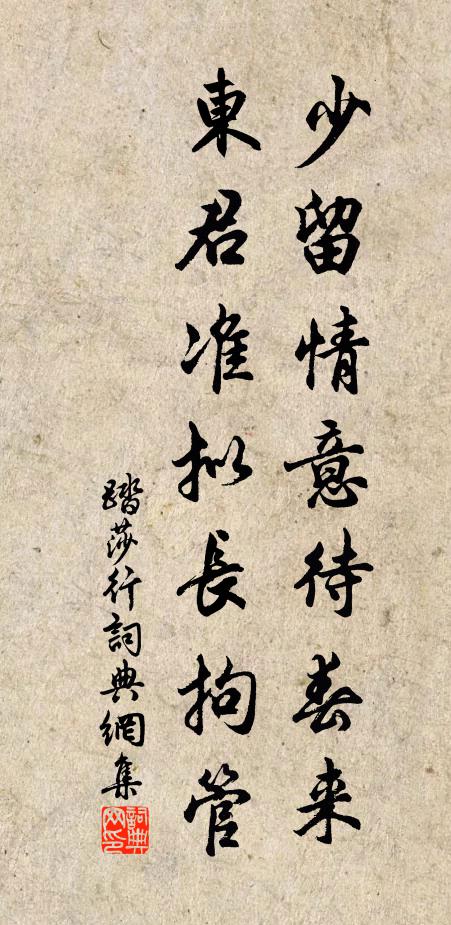 少留情意待春来
東君准拟長拘管
踏莎行詞典網集
詞典网印